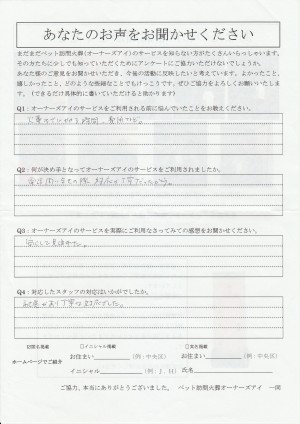 あなたのお声をお聞かせください
まだまだペット訪問火葬(オーナーズアイ)のサービスを知らない方がたくさんいらっしゃいます。
その方たちに少しでも知っていただくためにアンケートにご協力いただけないでしょうか。
あなた様のご意見をお聞かせいただき、今後の活動に反映したいと考えています。よかったこと、
嬉しかったこと、どのような些細なことでもけっこうです。ぜひご協力をよろしくお願いいたしま
す。(できるだけ具体的に書いていただけると助かります)
Q1:オーナーズアイのサービスをご利用される前に悩んでいたことをお教えください。
Q2:何が決め手となってオーナーズアイのサービスをご利用されましたか。
Q3:オーナーズアイのサービスを実際にご利用なさってみての感想をお聞かせください。
安心して見送れた。
Q4:対応したスタッフの対応はいかがでしたか。
対応でした。
□イニシャル掲載 □実名掲載
ホームページでご紹介
お住まい (例:中央区) お住まい (例:中央区)
イニシャル (例:J.H) 氏名
ご協力、本当にありがとうございました。 ペット訪問火葬オーナーズアイ 一同